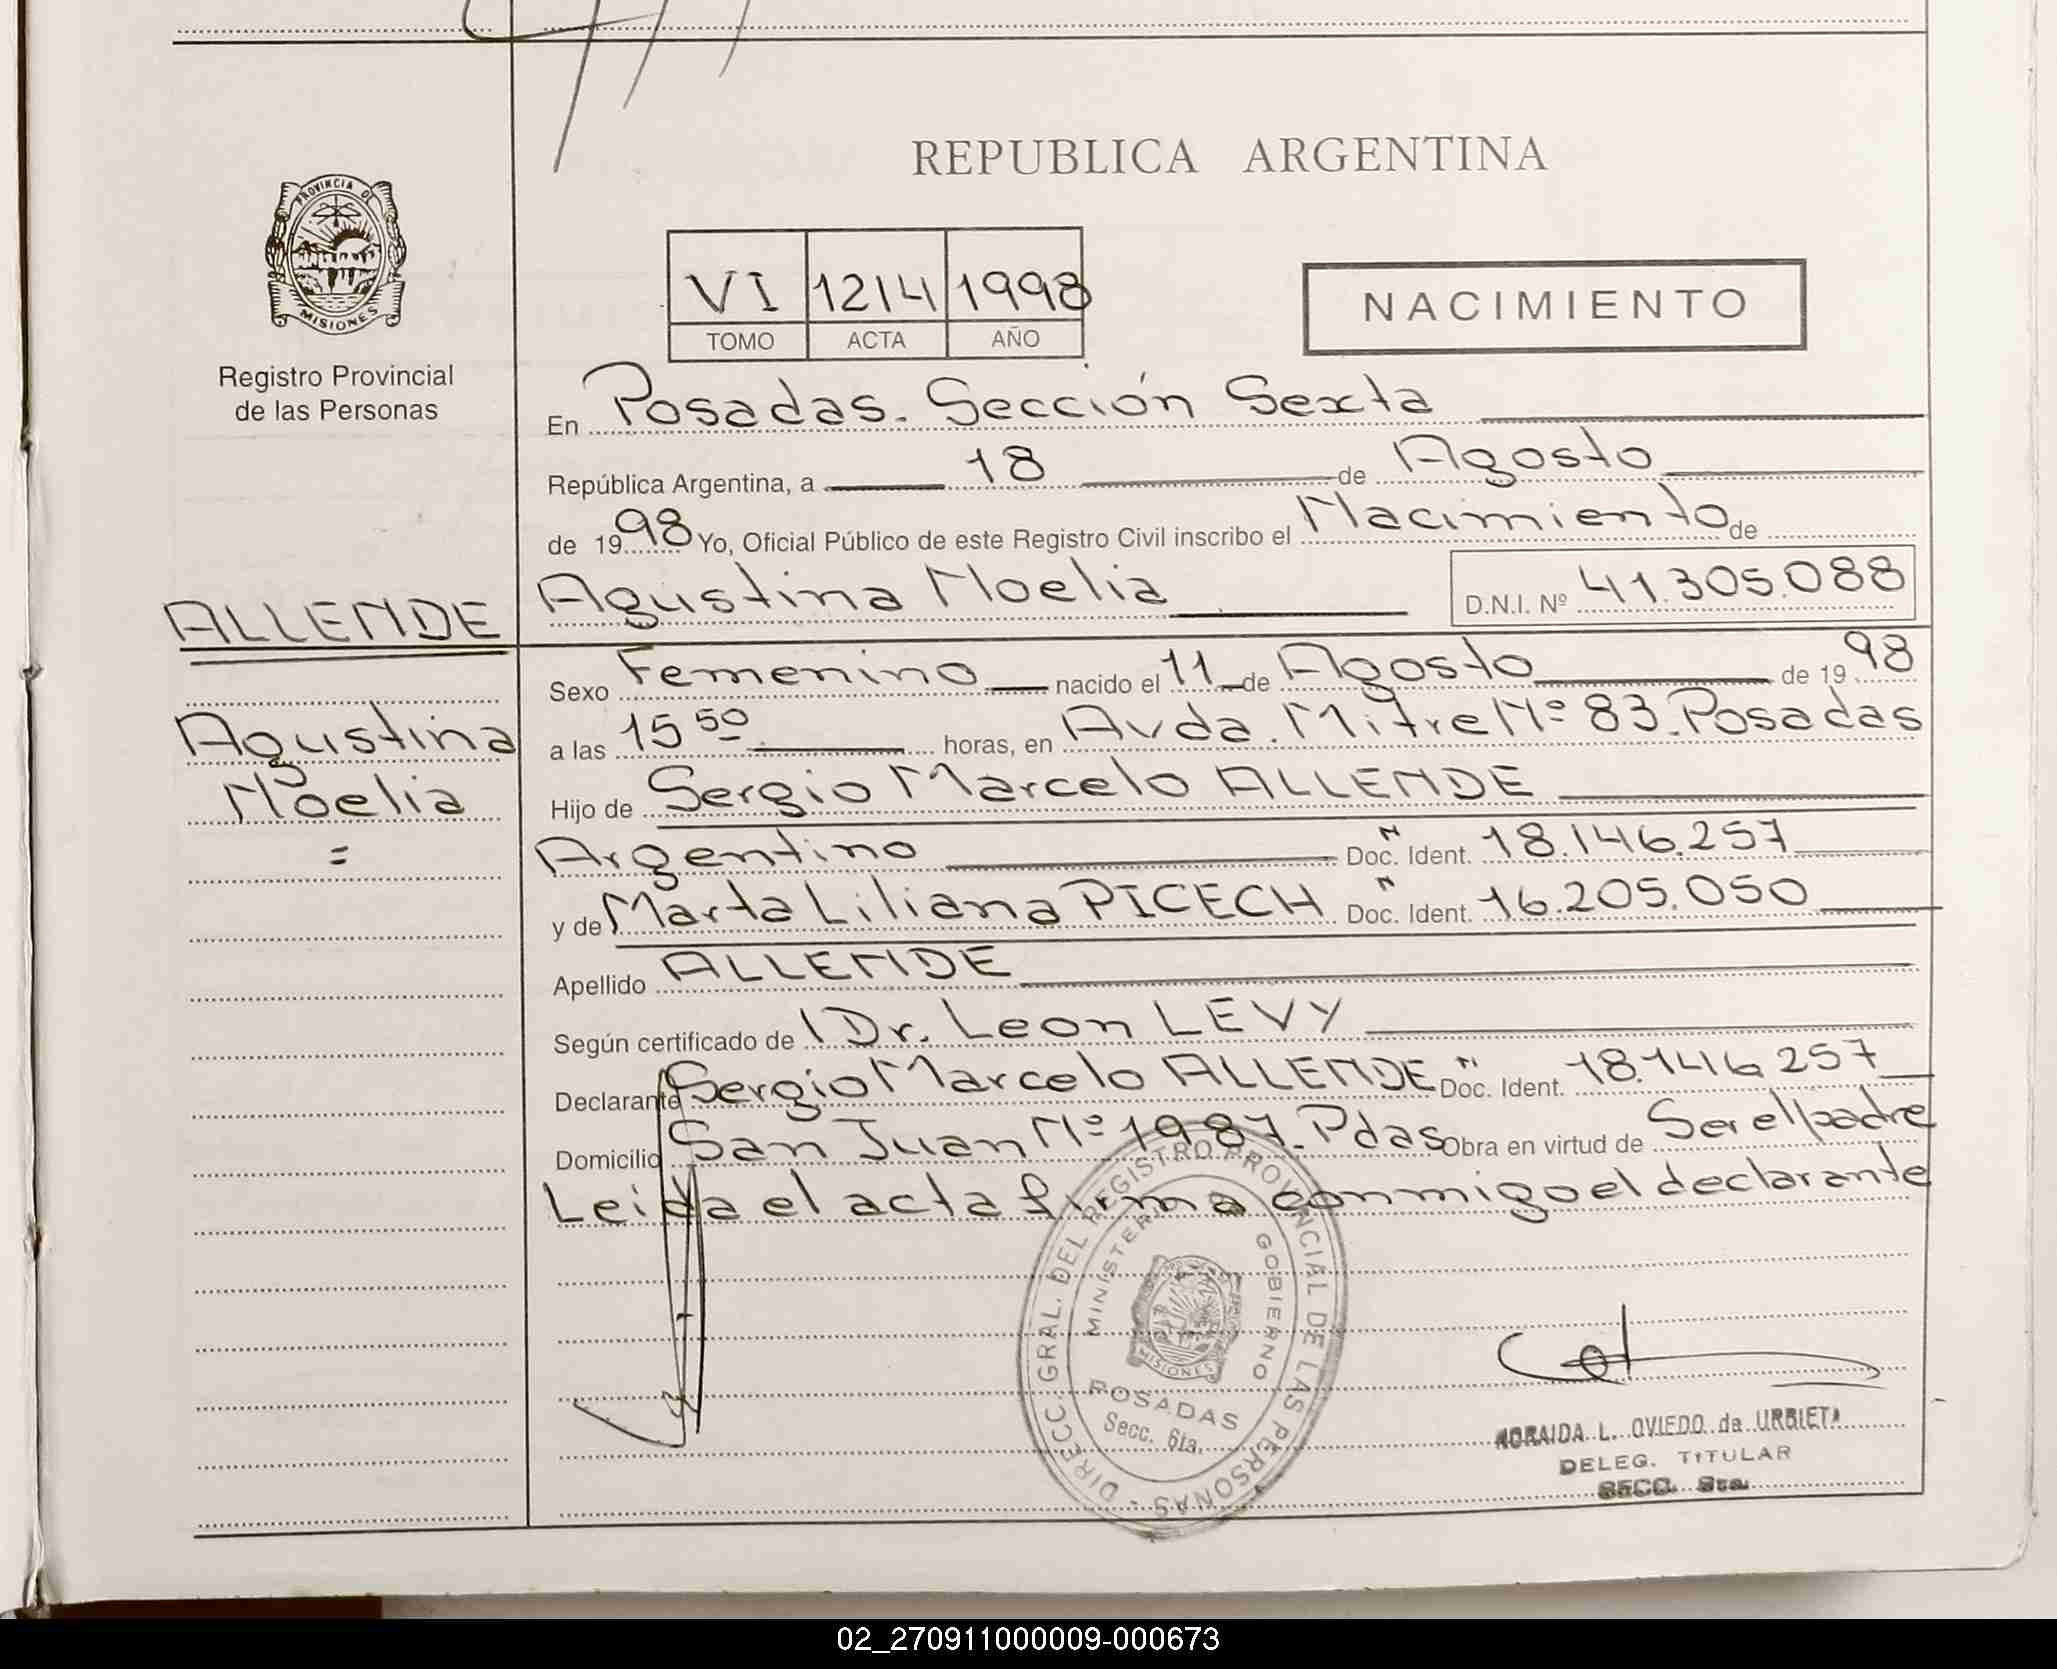 REPUBLICA ARGENTINA
PROVINCIA DE
MISIONES
Registro Provincial
de las Personas
VI 1214 1998
TOMO ACTA AÑO
NACIMIENTO
En Posadas. Sección Sexta
República Argentina, a 18 de Agosto
de 1998 Yo, Oficial Público de este Registro Civil inscribo el Nacimiento de
Agustina Noelia D.N.I. Nº 41.305.088
ALLENDE
Agustina
Noelia
=
Sexo Femenino nacido el 11 de Agosto de 1998
a las 15 50 horas, en Avda. Mitre Nº 83. Posadas
Hijo de Sergio Marcelo ALLENDE
Argentino Doc. Ident. 18.146.257
y de Marta Liliana PICECH Doc. Ident. 16.205.050
Apellido ALLENDE
Según certificado de Dr. Leon LEVY
Declarante Sergio Marcelo ALLENDE Doc. Ident. 18.146.257
Domicilio San Juan Nº 1987. Pdas Obra en virtud de Ser el padre
Leida el acta firma conmigo el declarante
DIRECC. GRAL. DEL REGISTRO PROVINCIAL DE LAS PERSONAS
MINISTERIO DE GOBIERNO
MISIONES
POSADAS
Secc. 6ta.
L. OVIEDO de URBIETA
DELEG. TITULAR
SECC. 6ta.
02_270911000009-000673